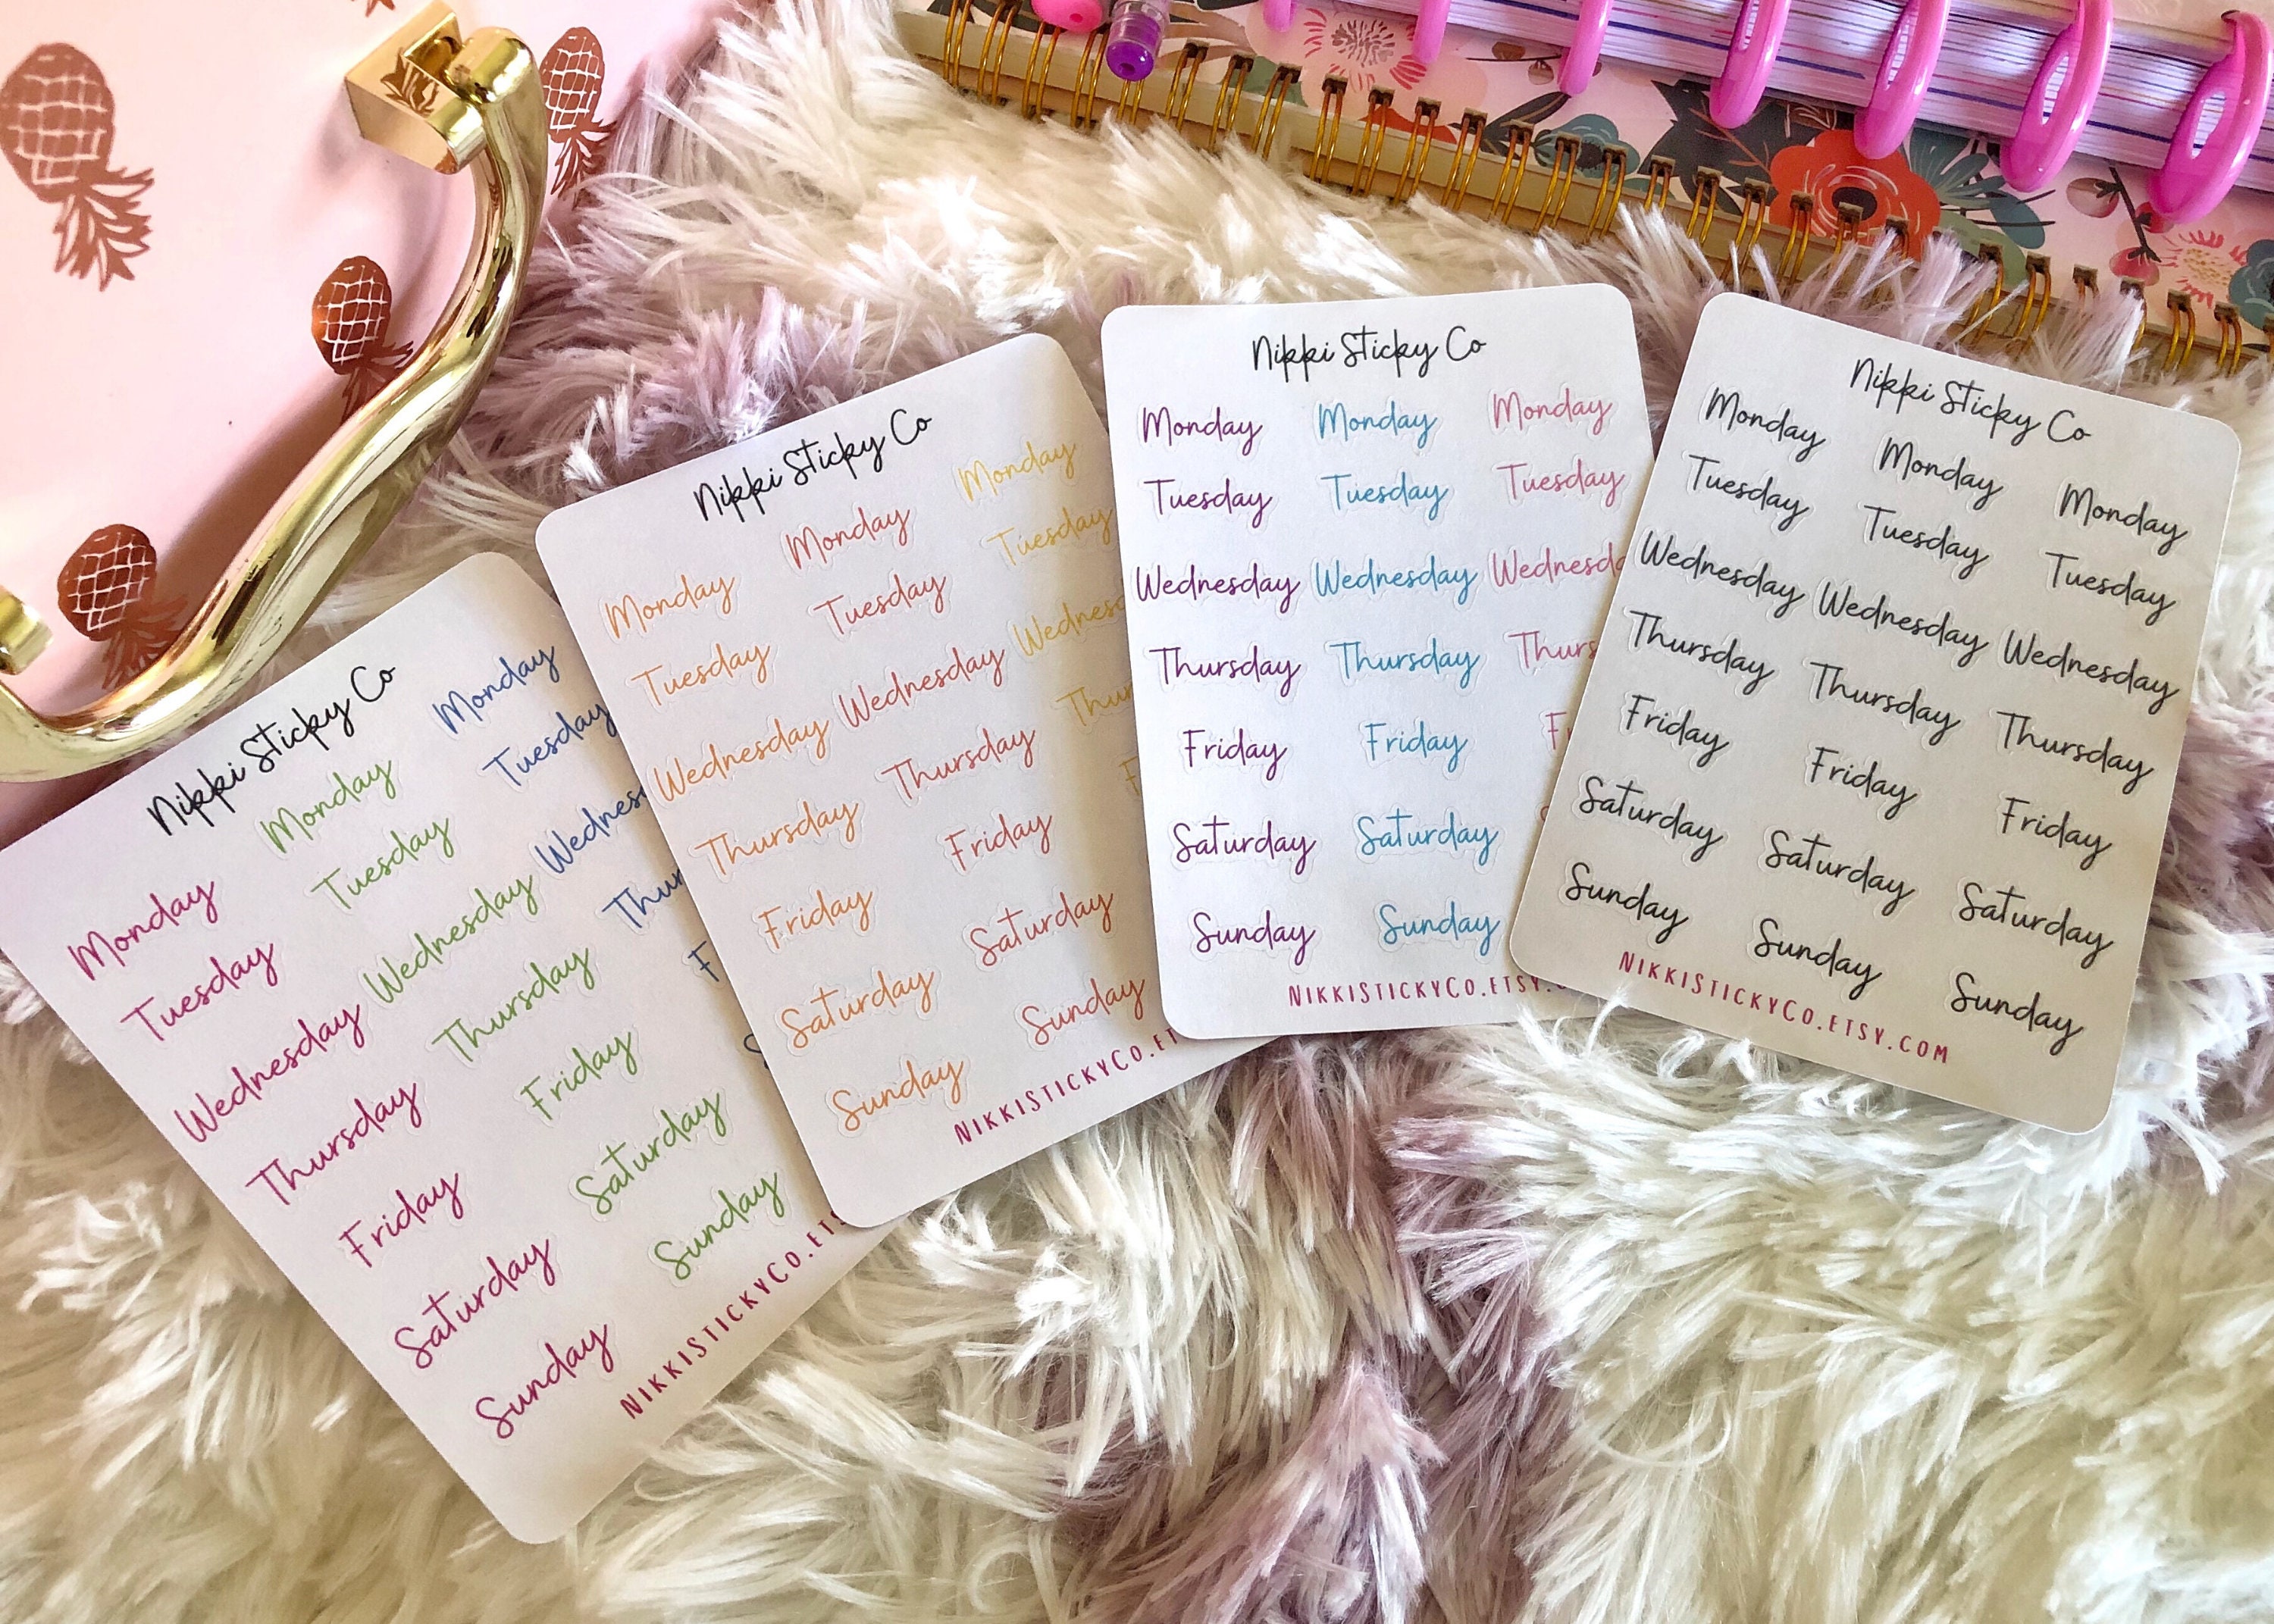 Nikki Sticky Co
Monday Monday Monday
Tuesday Tuesday Tuesday
Wednesday Wednesday Wednes
Thursday Thursday Thur
Friday Friday F
Saturday Saturday S
Sunday Sunday
NIKKISTICKYCO.ETS
Nikki Sticky Co
Monday Monday Monday
Tuesday Tuesday Tuesday
Wednesday Wednesday Wednes
Thursday Thursday Thur
Friday Friday F
Saturday Saturday
Sunday Sunday
NIKKISTICKYCO.ET
Nikki Sticky Co
Monday Monday Monday
Tuesday Tuesday Tuesday
Wednesday Wednesday Wednesd
Thursday Thursday Thurs
Friday Friday F
Saturday Saturday S
Sunday Sunday
NIKKISTICKYCO.ETSY.
Nikki Sticky Co
Monday Monday Monday
Tuesday Tuesday Tuesday
Wednesday Wednesday Wednesday
Thursday Thursday Thursday
Friday Friday Friday
Saturday Saturday Saturday
Sunday Sunday Sunday
NIKKISTICKYCO.ETSY.COM